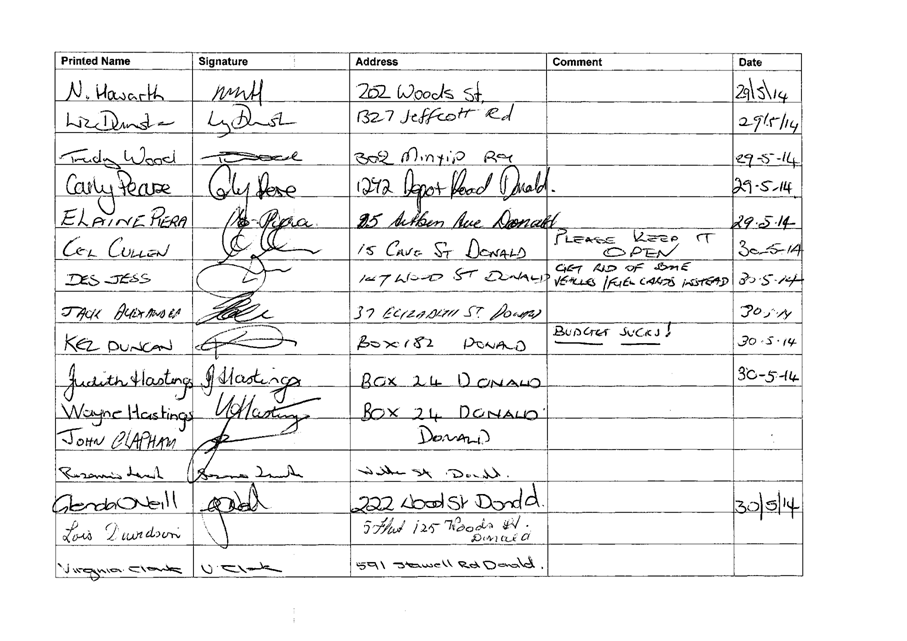 Printed Name Signature Address Comment Date
N. Havarth 202 Woods St, 29/5/14
1327 Jeffcott Rd 29/5/14
Trudy Wood 302 Minyip Rd 29-5-14
Carly Pearse 1272 Depot Road Donald. 29-5-14
ELAINE PIERA 25 Aitken Ave Donald 29.5.14
CEL CULLEN 15 CAVE ST DONALD PLEASE KEEP IT 30-5-14
OPEN
DES JESS 147 WOOD ST DONALD GET RID OF SOME 30.5.14
VEHICLES / FUEL CARDS INSTEAD
JACK ALEXANDER 37 ELIZABETH ST. DONALD
KEZ DUNCAN BOX 182 DONALD BUDGET SUCKS! 30.5.14
Judith Hastings J Hastings BOX 24 DONALD 30-5-14
Wayne Hastings W Hastings BOX 24 DONALD
JOHN CLAPHAM DONALD
St Donald.
Glenda O'Neill 222 Wood St Donald. 30/5/14
Lois Davidson 125 Woods St.
Donald
Virginia Clark V. Clark 591 Stawell Rd Donald.